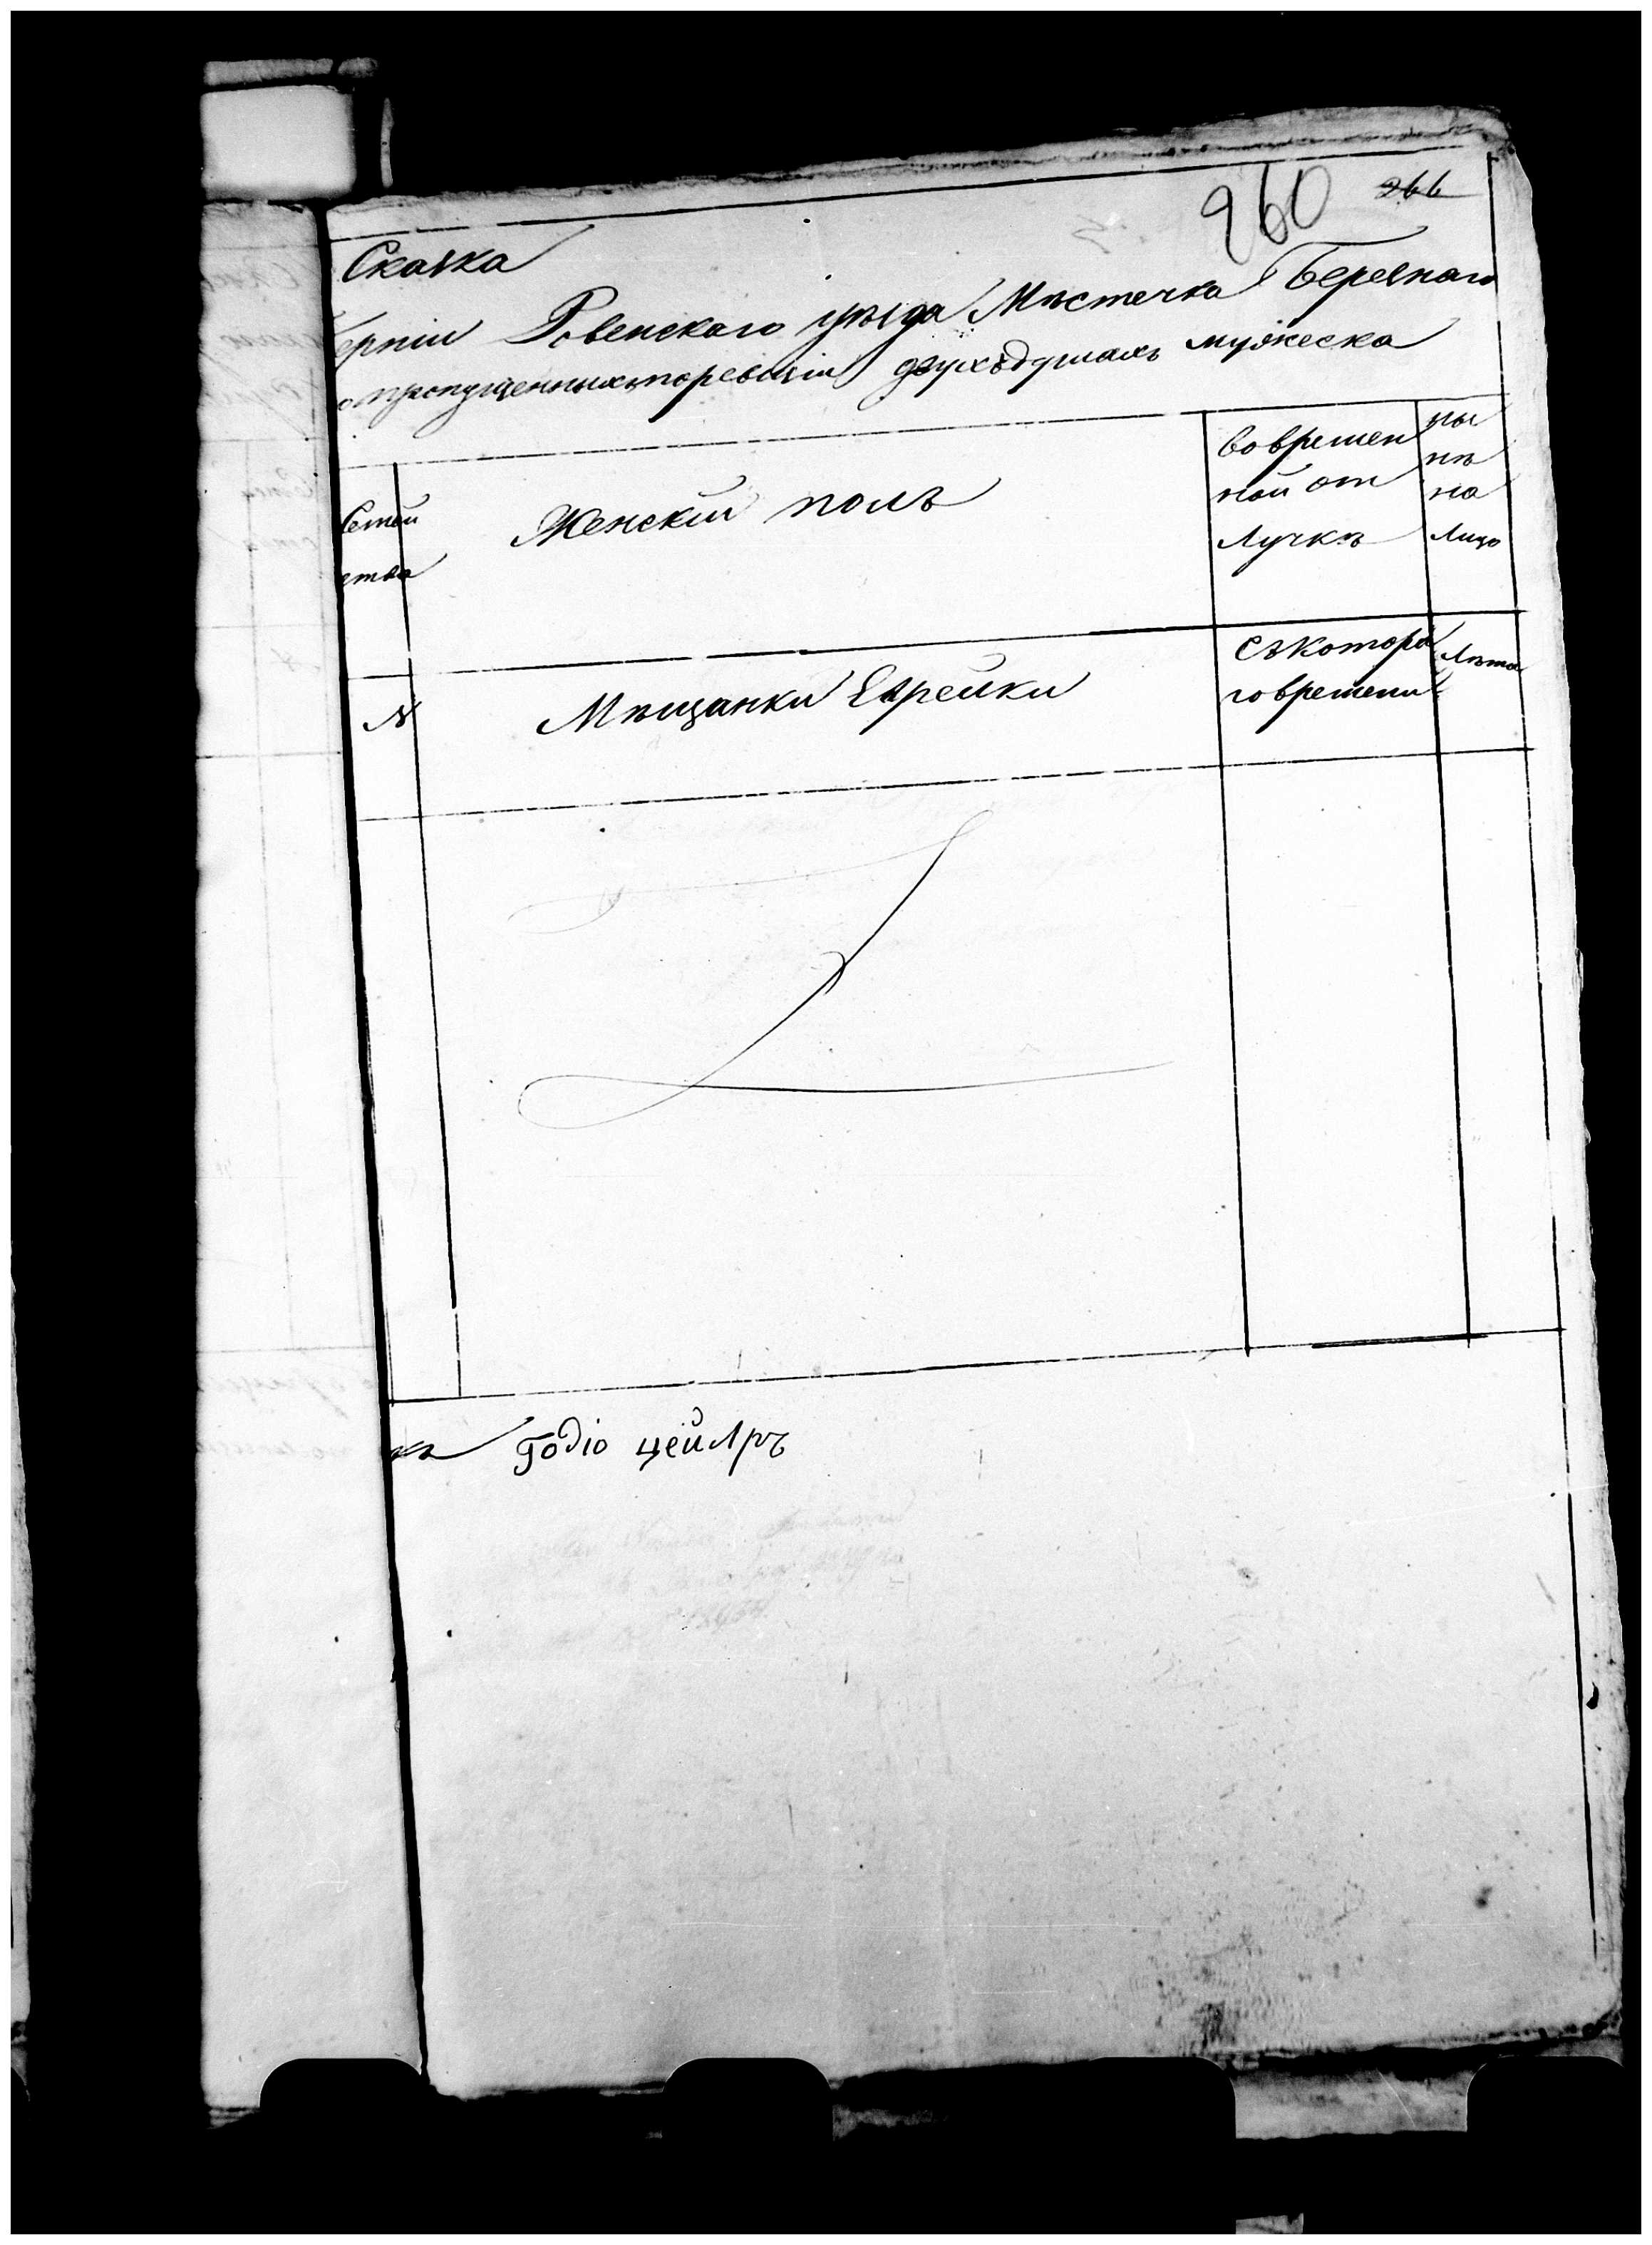 260 266
Сказка
ерніи Ровенскаго уѣзда Мѣстечка Березнаго
о пропущенныхъ поревизіи двухъ душахъ мужеска
Семей
ства
Женскій полъ
Вовремен
ной от
лучкѣ
ны
нѣ
на
лицо
N
Мѣщанки Еврейки
Съ котора
го времени
Лѣта
Годіо цейлръ